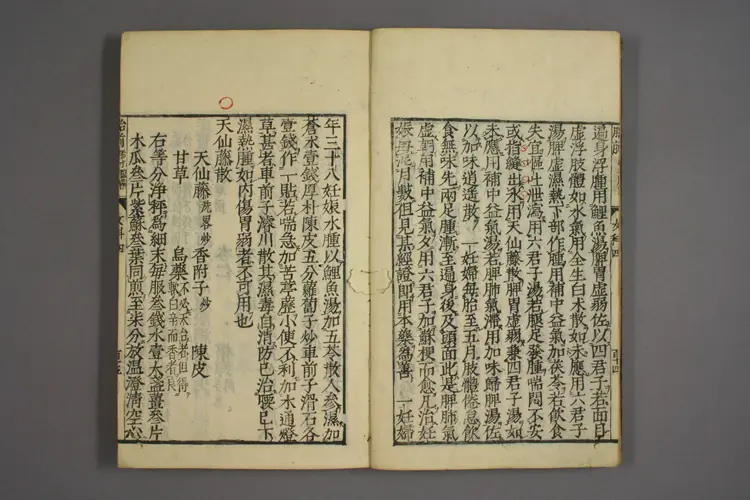 遍身浮腫用鯉魚湯脾胃虛弱佐以四君子若面目
虛浮肢體如水氣用全生白朮散如未應用六君子
湯脾虛濕熱下部作腫用補中益氣加茯苓若飲食
失宜嘔吐泄瀉用六君子湯若腿足發腫喘悶不安
或指縫出水用天仙藤散脾胃虛弱兼四君子湯如
未應用補中益氣湯若脾肺氣滯用加味歸脾湯佐
以加味逍遙散 一妊婦每胎至五月肢體倦怠飲
食無味先兩足腫漸至遍身後及頭面此是脾肺氣
虛朝用補中益氣夕用六君子加蘇梗而愈凡治妊
娠毋泥月數但見某經證即用本藥為善 一妊婦
年三十八妊娠水腫以鯉魚湯加五苓散人參濕加
蒼朮壹錢厚朴陳皮五分蘿蔔子炒車前子滑石各
壹錢作一貼若喘急加苦葶藶小便不利加木通燈
草甚者車前子濬川散其濕毒自消防已治腰已下
濕熱腫如內傷胃弱者不可用也
天仙藤散
天仙藤洗略炒 香附子炒 陳皮
甘草 烏藥不必天台者但得軟白辛而香者良
右等分淨秤為細末每服叁錢水壹大盞薑叁片
木瓜叁片紫蘇叁葉同煎至柒分放溫澄清空心